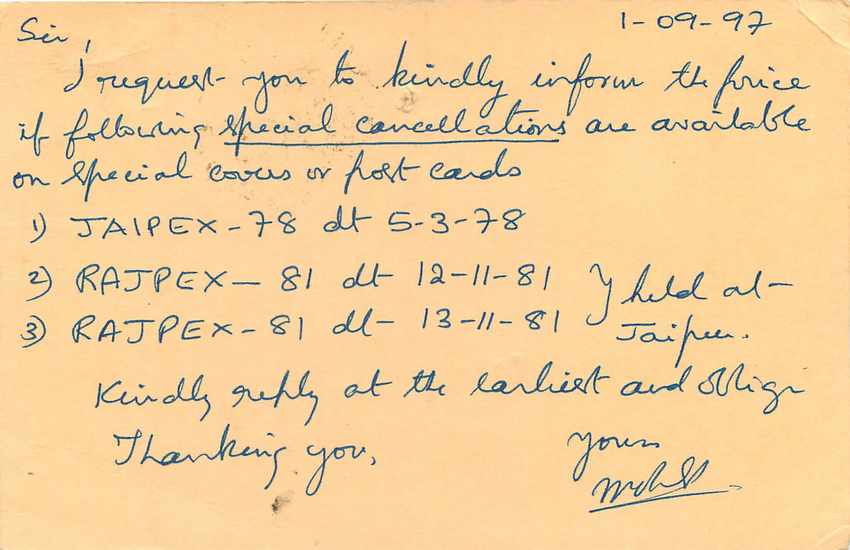 1-09-97
Sir,
I request you to kindly inform the price
if following special cancellations are available
on special covers or post cards
1) JAIPEX-78 dt 5-3-78
2) RAJPEX- 81 dt 12-11-81 } held at-
3) RAJPEX-81 dt- 13-11-81 Jaipur.
Kindly reply at the earliest and oblige
Thanking you,
yours